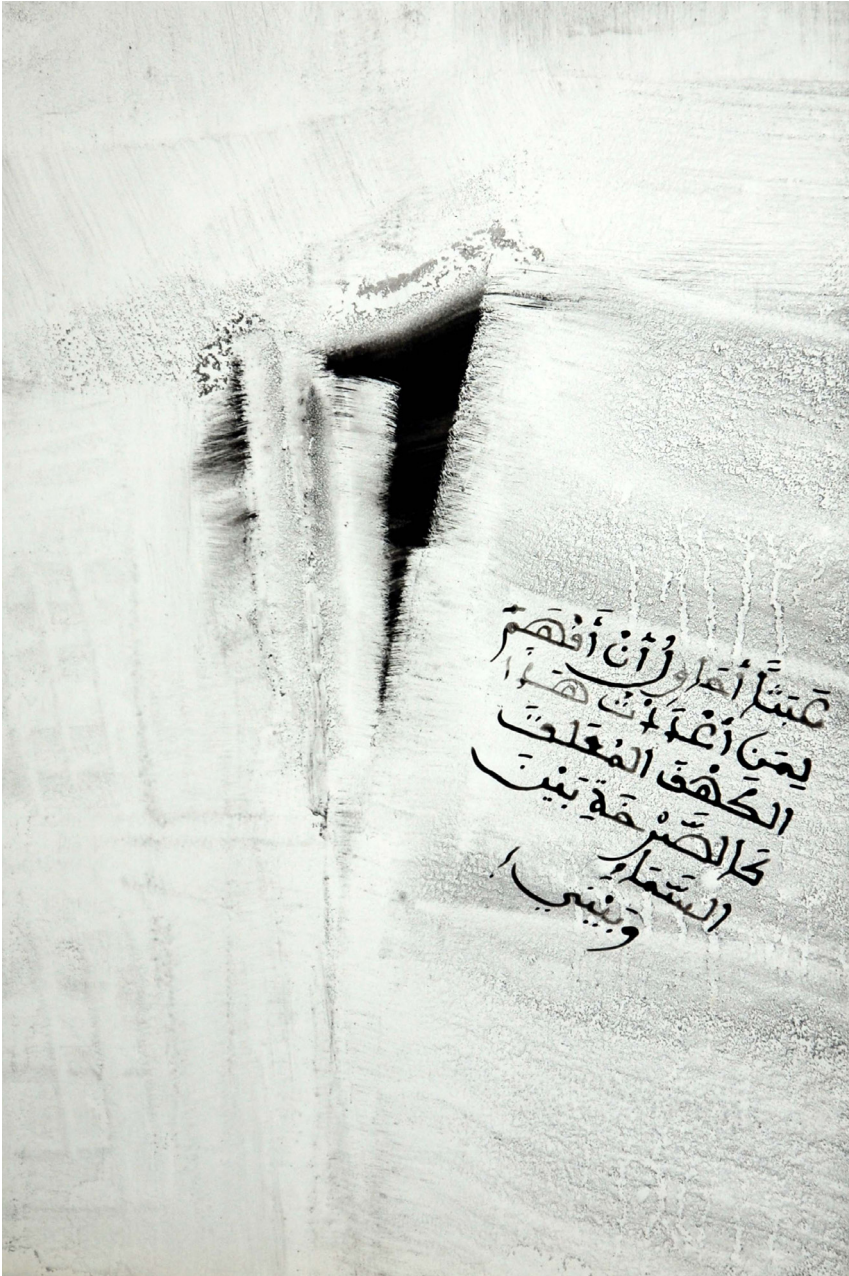 عَبَثاً أُحَاوِلُ أَنْ أَفْهَمَ
لِمَنْ أَعْدَدْتُ هَذَا
الكَهْفَ المُعَلَّقَ
كَالصَّرْخَةِ بَيْنَ
السَّمَاءِ
وَبَيْنِي!